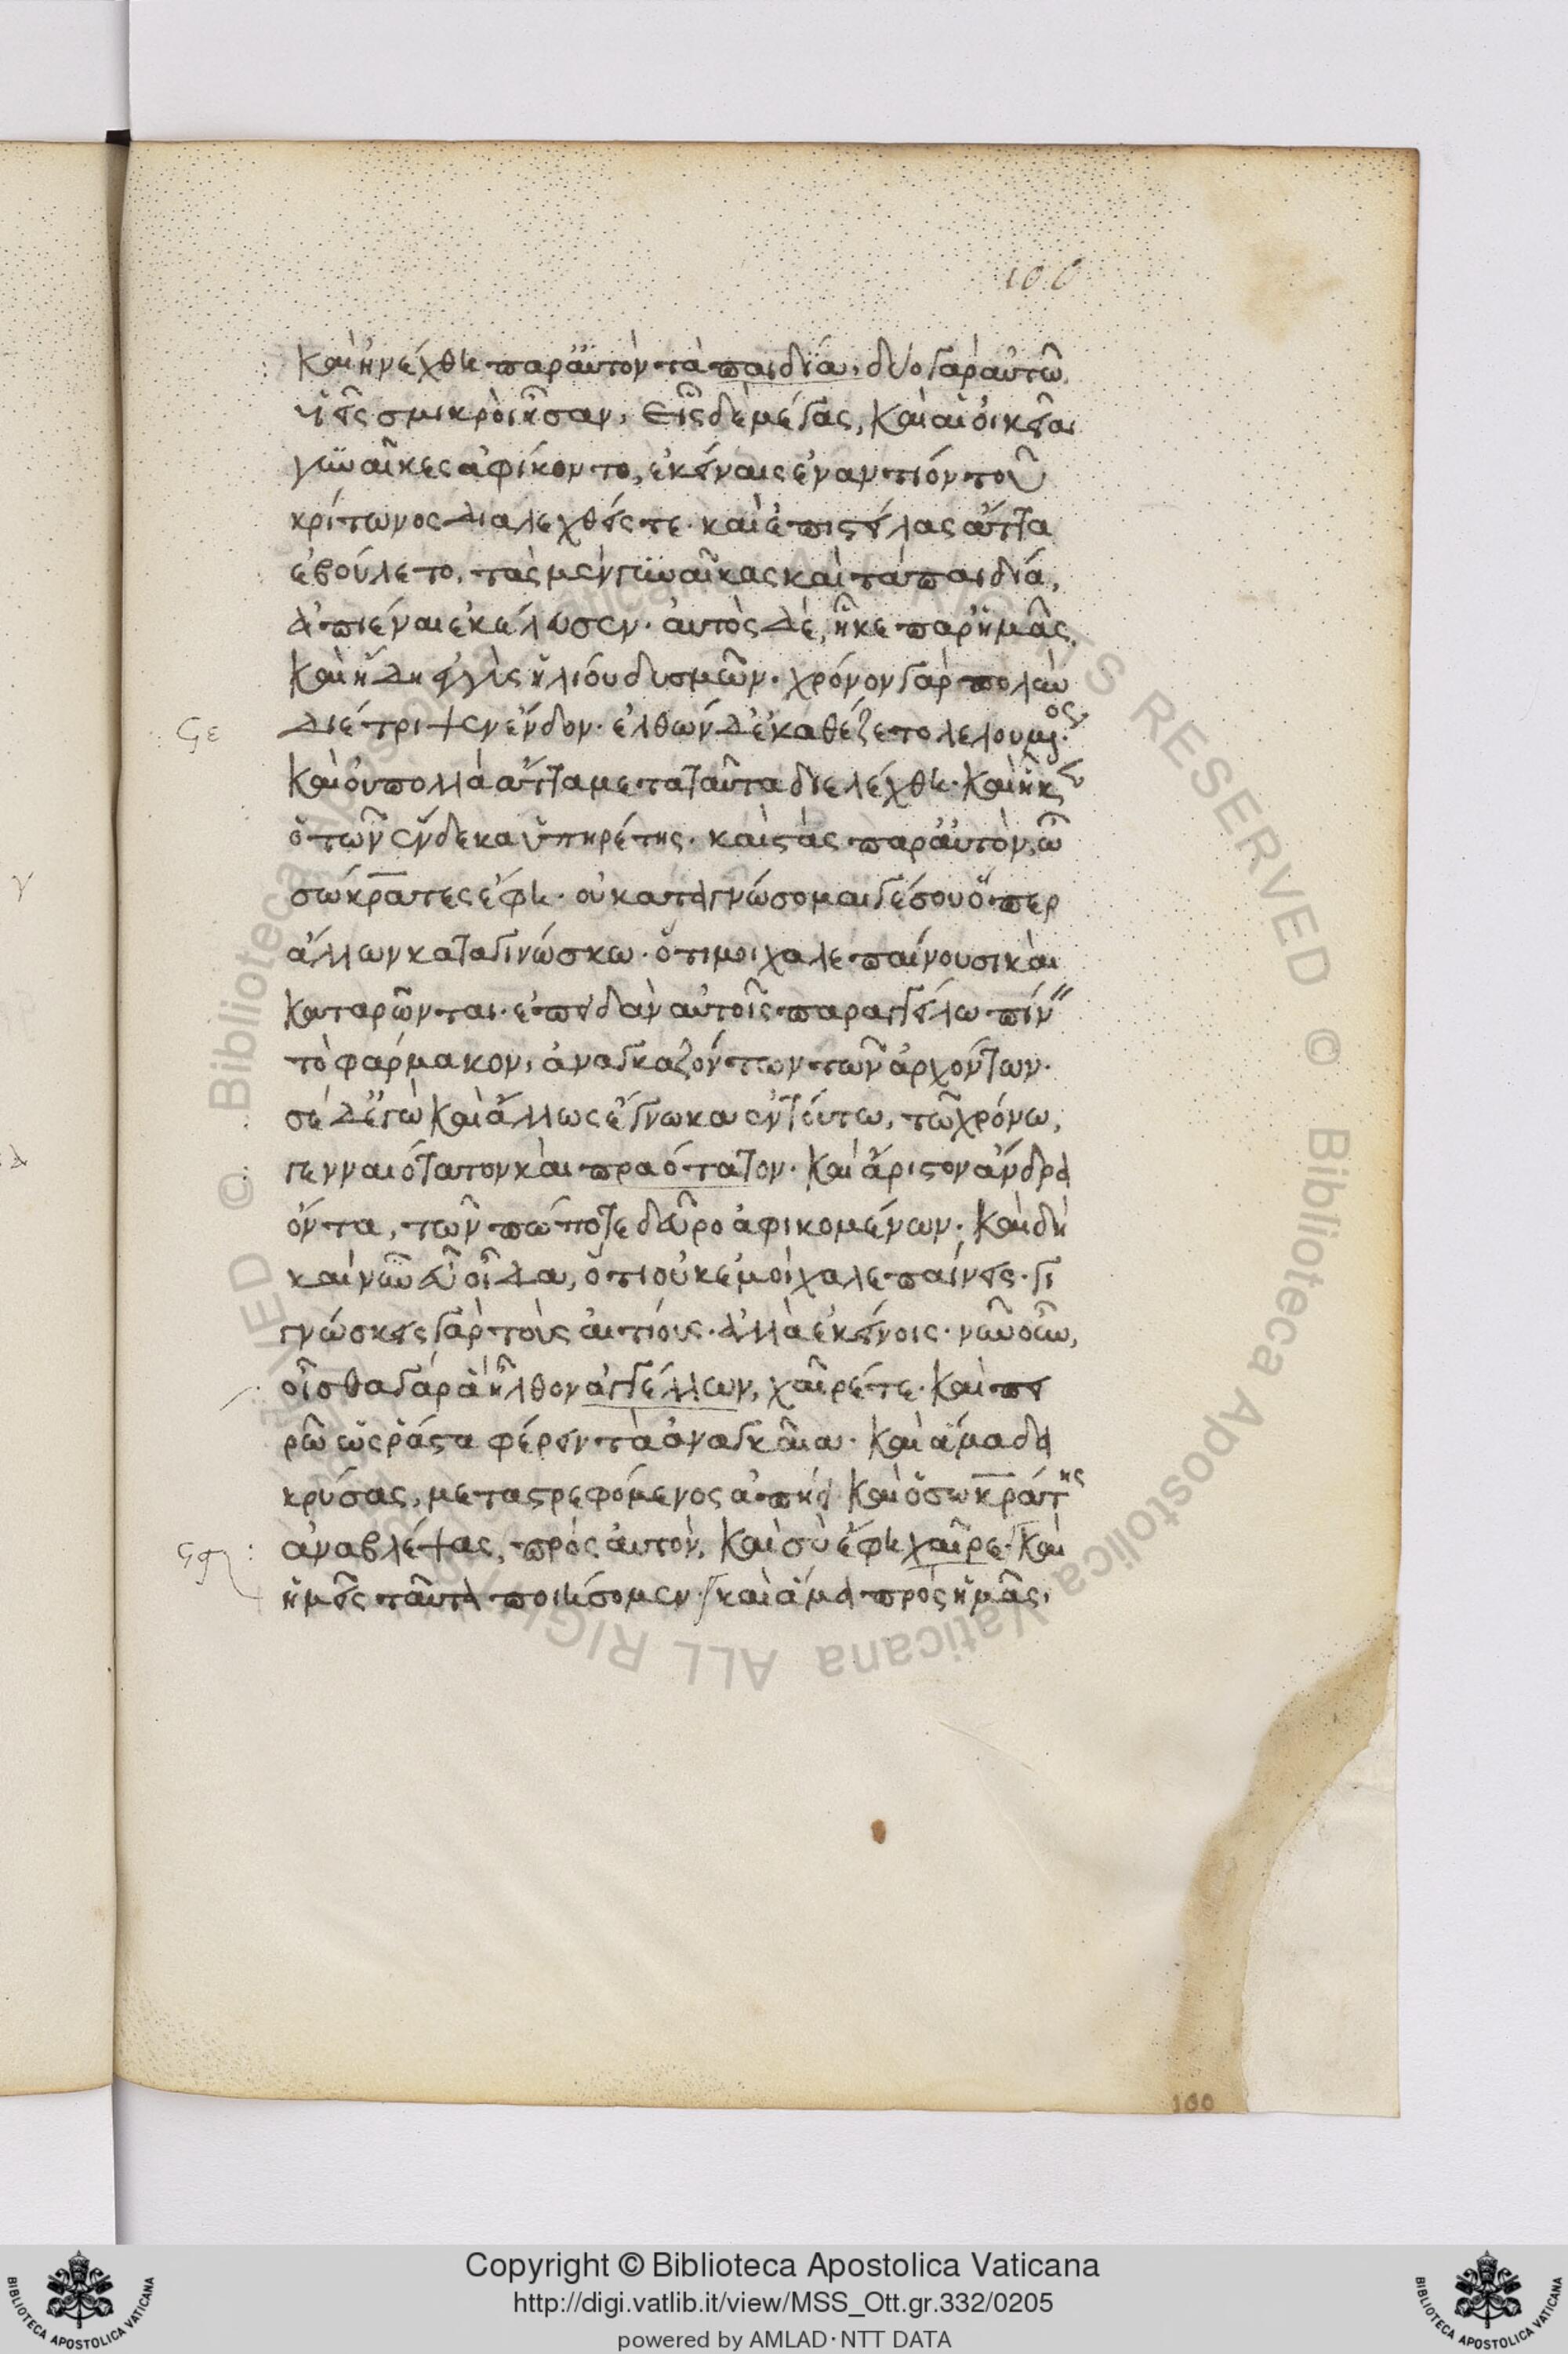 100
καὶ ἠνέχθη παρ' αὐτὸν τὰ παιδία, δύο γὰρ αὐτῶ
υἱεῖς σμικροὶ ἦσαν, εἷς δὲ μέγας, καὶ αἱ οἰκεῖαι
γυναῖκες ἀφίκοντο, ἐκείναις ἐναντίον τοῦ
κρίτωνος διαλεχθείς τε· καὶ ἐπιστείλας ἅττα
ἐβούλετο, τὰς μὲν γυναῖκας καὶ τὰ παιδία,
ἀπιέναι ἐκέλευσεν· αὐτὸς δὲ, ἧκε παρ' ἡμᾶς,
καὶ ἤδη ἐγγὺς ἡλίου δυσμῶν· χρόνον γὰρ πολὺν
ϛε διέτριψεν ἔνδον· ἐλθὼν δ' ἐκαθέζετο λελουμένος·
καὶ οὐ πολλὰ ἄττα μετὰ ταῦτα διελέχθη· καὶ ἧκεν
ὁ τῶν ἕνδεκα ὑπηρέτης· καὶ στὰς παρ' αὐτὸν, ὦ
σώκρατες ἔφη· οὐ καταγνώσομαι γέ σου ὅπερ
ἄλλων καταγινώσκω· ὅτι μοι χαλεπαίνουσι καὶ
καταρῶνται· ἐπειδὰν αὐτοῖς παραγγείλω πίν"
τὸ φάρμακον, ἀναγκαζόντων τῶν ἀρχόντων·
σὲ δ' ἐγὼ καὶ ἄλλως ἔγνωκα ἐν τούτω, τῶ χρόνω,
γενναιότατον καὶ πραότατον· καὶ ἄριστον ἄνδρα
ὄντα, τῶν πώποτε δεῦρο ἀφικομένων· καὶ δὴ
καὶ νῦν εὖ οἶδα, ὅτι οὐκ ἐμοὶ χαλεπαίνεις· γι
γνώσκεις γὰρ τοὺς αἰτίους· ἀλλὰ ἐκείνοις· νῦν οὖν,
οἶσθα γὰρ ἃ ἦλθον ἀγγέλλων, χαῖρέ τε· καὶ πει
ρῶ ὡς ῥᾷστα φέρειν τὰ ἀναγκαῖα· καὶ ἅμα δα
κρύσας, μεταστρεφόμενος ἀπῄει καὶ ὁ σωκράτης
ἀναβλέψας, πρὸς αὐτὸν, καὶ σὺ ἔφη χαῖρε· καὶ
ἡμεῖς ταῦτα ποιήσομεν· καὶ ἅμα πρὸς ἡμᾶς,
100
Copyright © Biblioteca Apostolica Vaticana
http://digi.vatlib.it/view/MSS_Ott.gr.332/0205
powered by AMLAD·NTT DATA